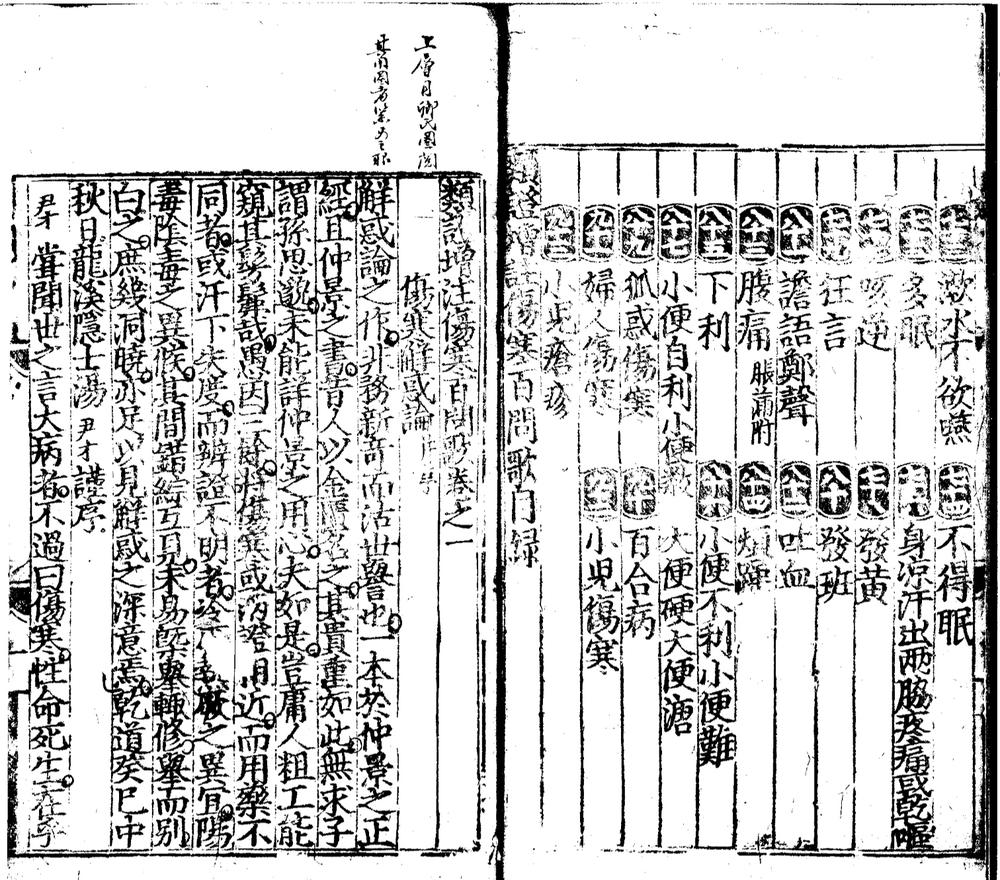 漱水不欲嚥
不得眠
多眠
身涼汗出兩脇疼痛或乾嘔
咳逆
發黃
狂言
八十
發班
譫語鄭聲
吐血
腹痛 脹滿附
煩躁
下利
小便不利小便難
八十七
小便自利小便數
大便硬大便溏
狐惑傷寒
百合病
婦人傷寒
小兒傷寒
小兒瘡疹
證增註傷寒百問歌門錄
類證增注傷寒百問歌卷之一
傷寒解惑論
解惑論之作非務新奇而沽世譽也一本於仲景之正
經且仲景之書昔人以金匱名之其貴重如此無求子
謂孫思邈未能詳仲景之用心夫如是豈庸人粗工能
窺其髣髴哉愚因三餘將傷寒或病證相近而用藥不
同者或汗下失度而辨證不明者冷厥之異宜陽
毒陰毒之異候其間錯綜互見未易槩舉輒修舉而別
白之庶幾洞曉亦足以見解惑之深意焉乾道癸巳中
秋日龍溪隱士湯尹才謹序
尹才嘗聞世之言大病者不過曰傷寒性命死生在乎